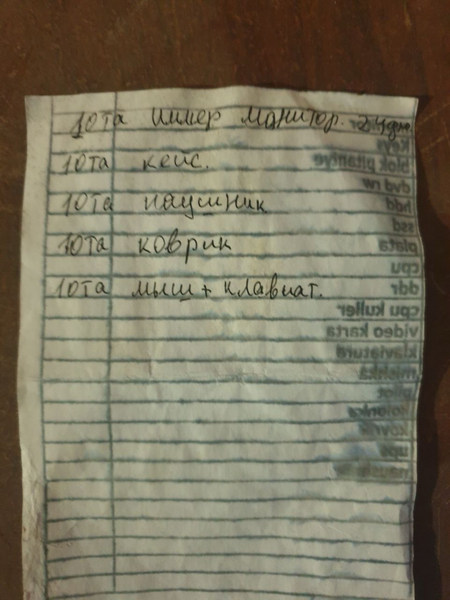 10та иимер манитор. 24дюм.
10та кейс.
10та наушник
10та коврик
10та мыш + клавиат.
keys
blok pitaniye
dvd rw
hdd
ssd
plata
cpu
ddr
cpu kuller
video karta
klaviatura
pilot
kolonka
kovrik
ups